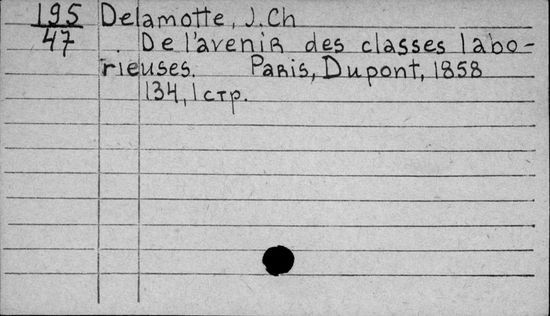 195 Delamotte, J. Ch
47 De l'avenir des classes labo-
rieuses. Paris, Dupont, 1858
134, 1 стр.